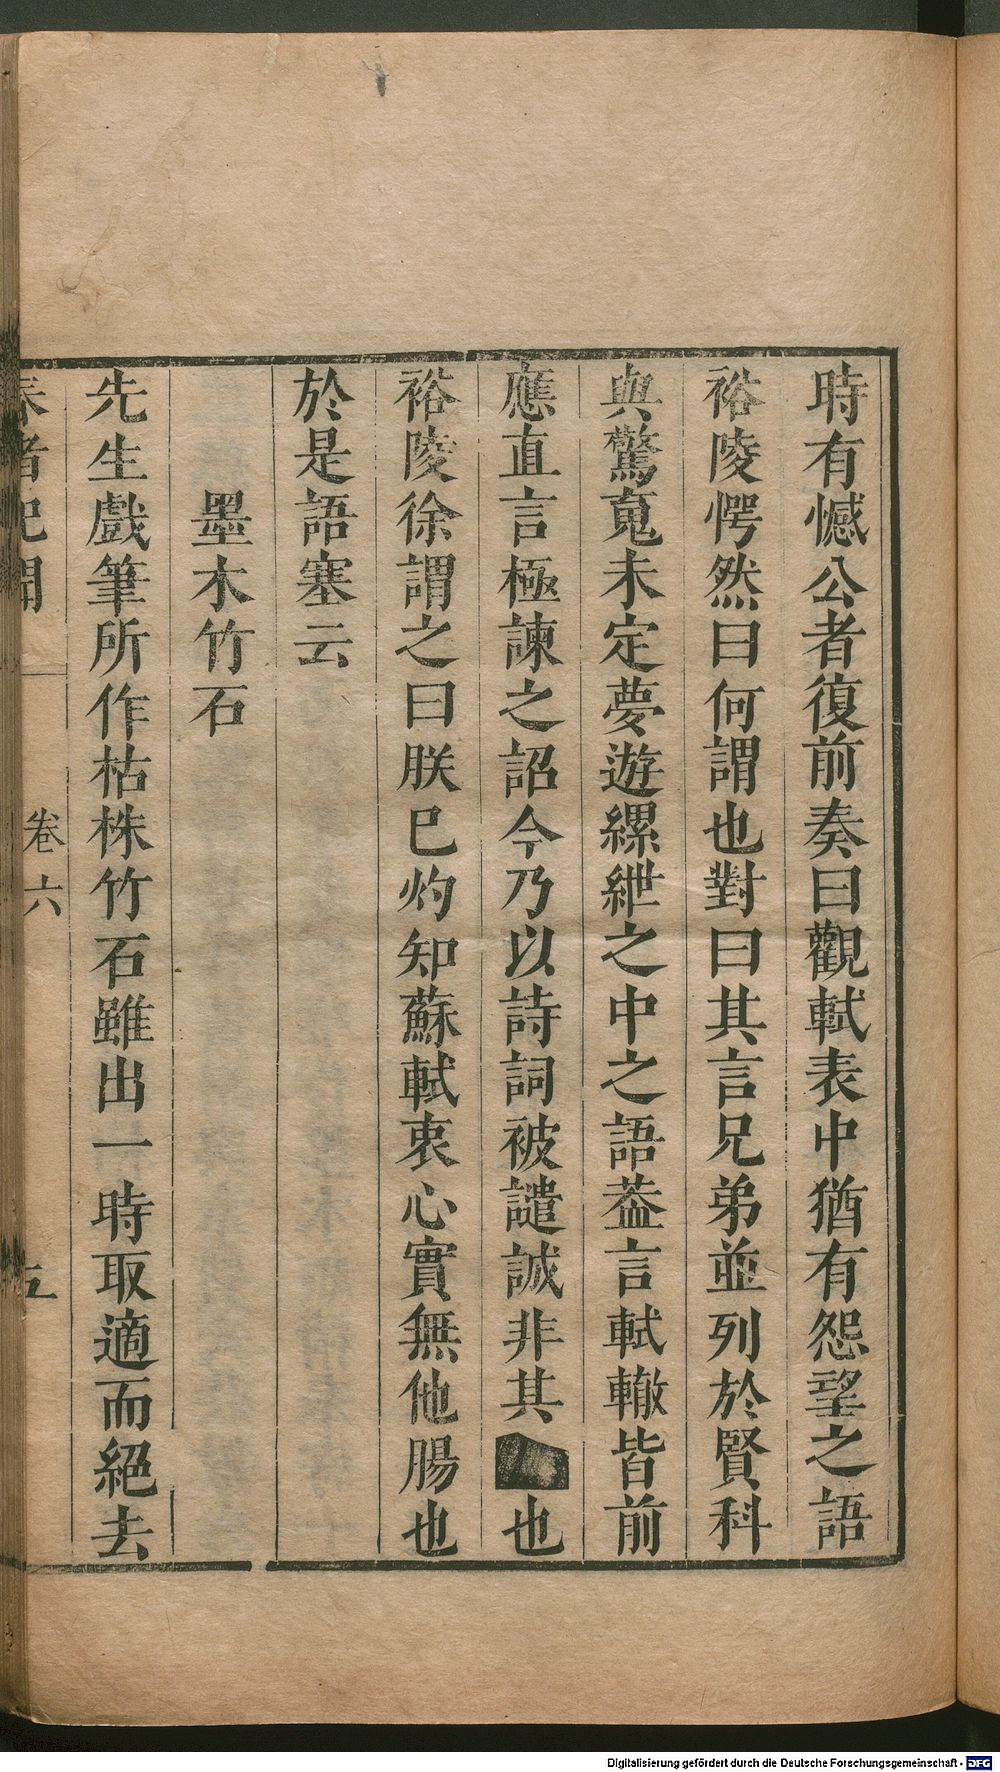 時有憾公者復前奏曰觀軾表中猶有怨望之語
裕陵愕然曰何謂也對曰其言兄弟並列於賢科
與驚䰟未定夢遊縲紲之中之語葢言軾轍皆前
應直言極諫之詔今乃以詩詞被譴誠非其也
裕陵徐謂之曰朕巳灼知蘇軾衷心實無他腸也
於是語塞云
墨木竹石
先生戲筆所作枯株竹石雖出一時取適而絕去
春渚紀聞 卷六 五
Digitalisierung gefördert durch die Deutsche Forschungsgemeinschaft - DFG